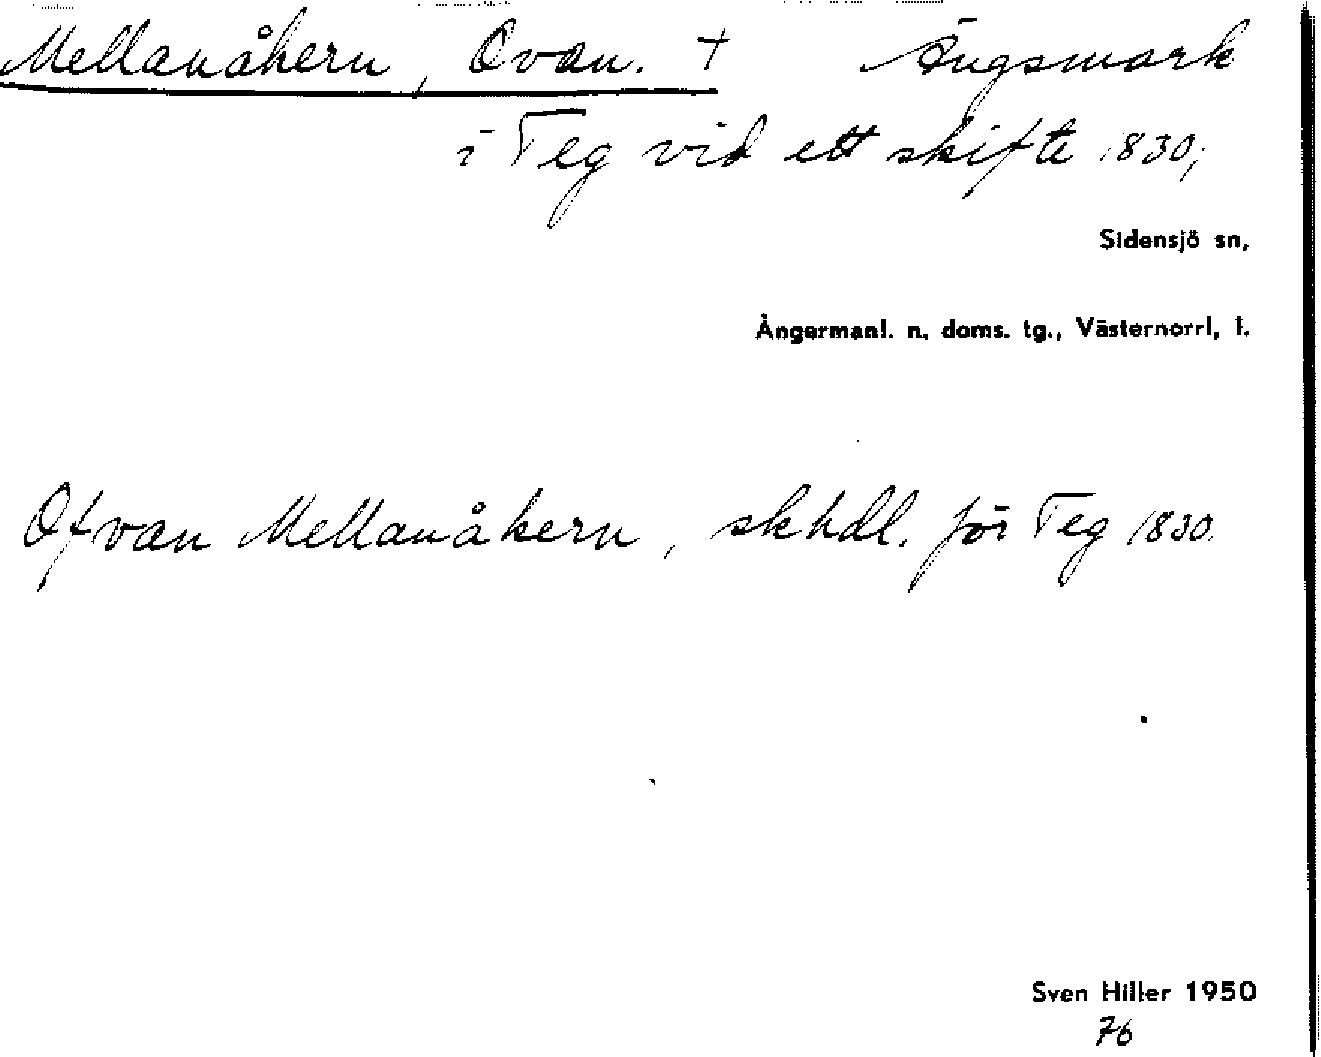 Mellanåkern, Ovan. † Ängsmark
i Teg vid ett skifte 1830;
Sidensjö sn,
Ångermanl. n. doms. tg., Västernorrl, l.
Ofvan Mellanåkern, skhdl. för Teg 1830.
Sven Hiller 1950
76